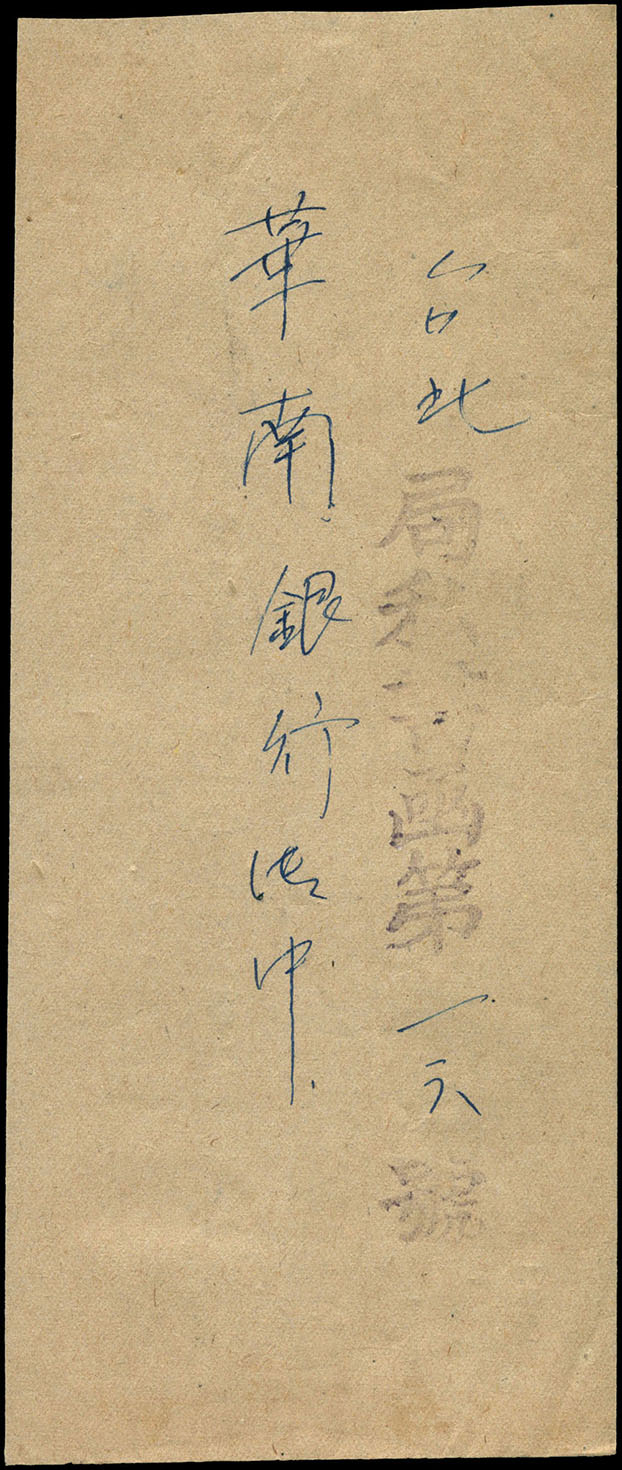 台北局私書函第一六號
華南銀行御中